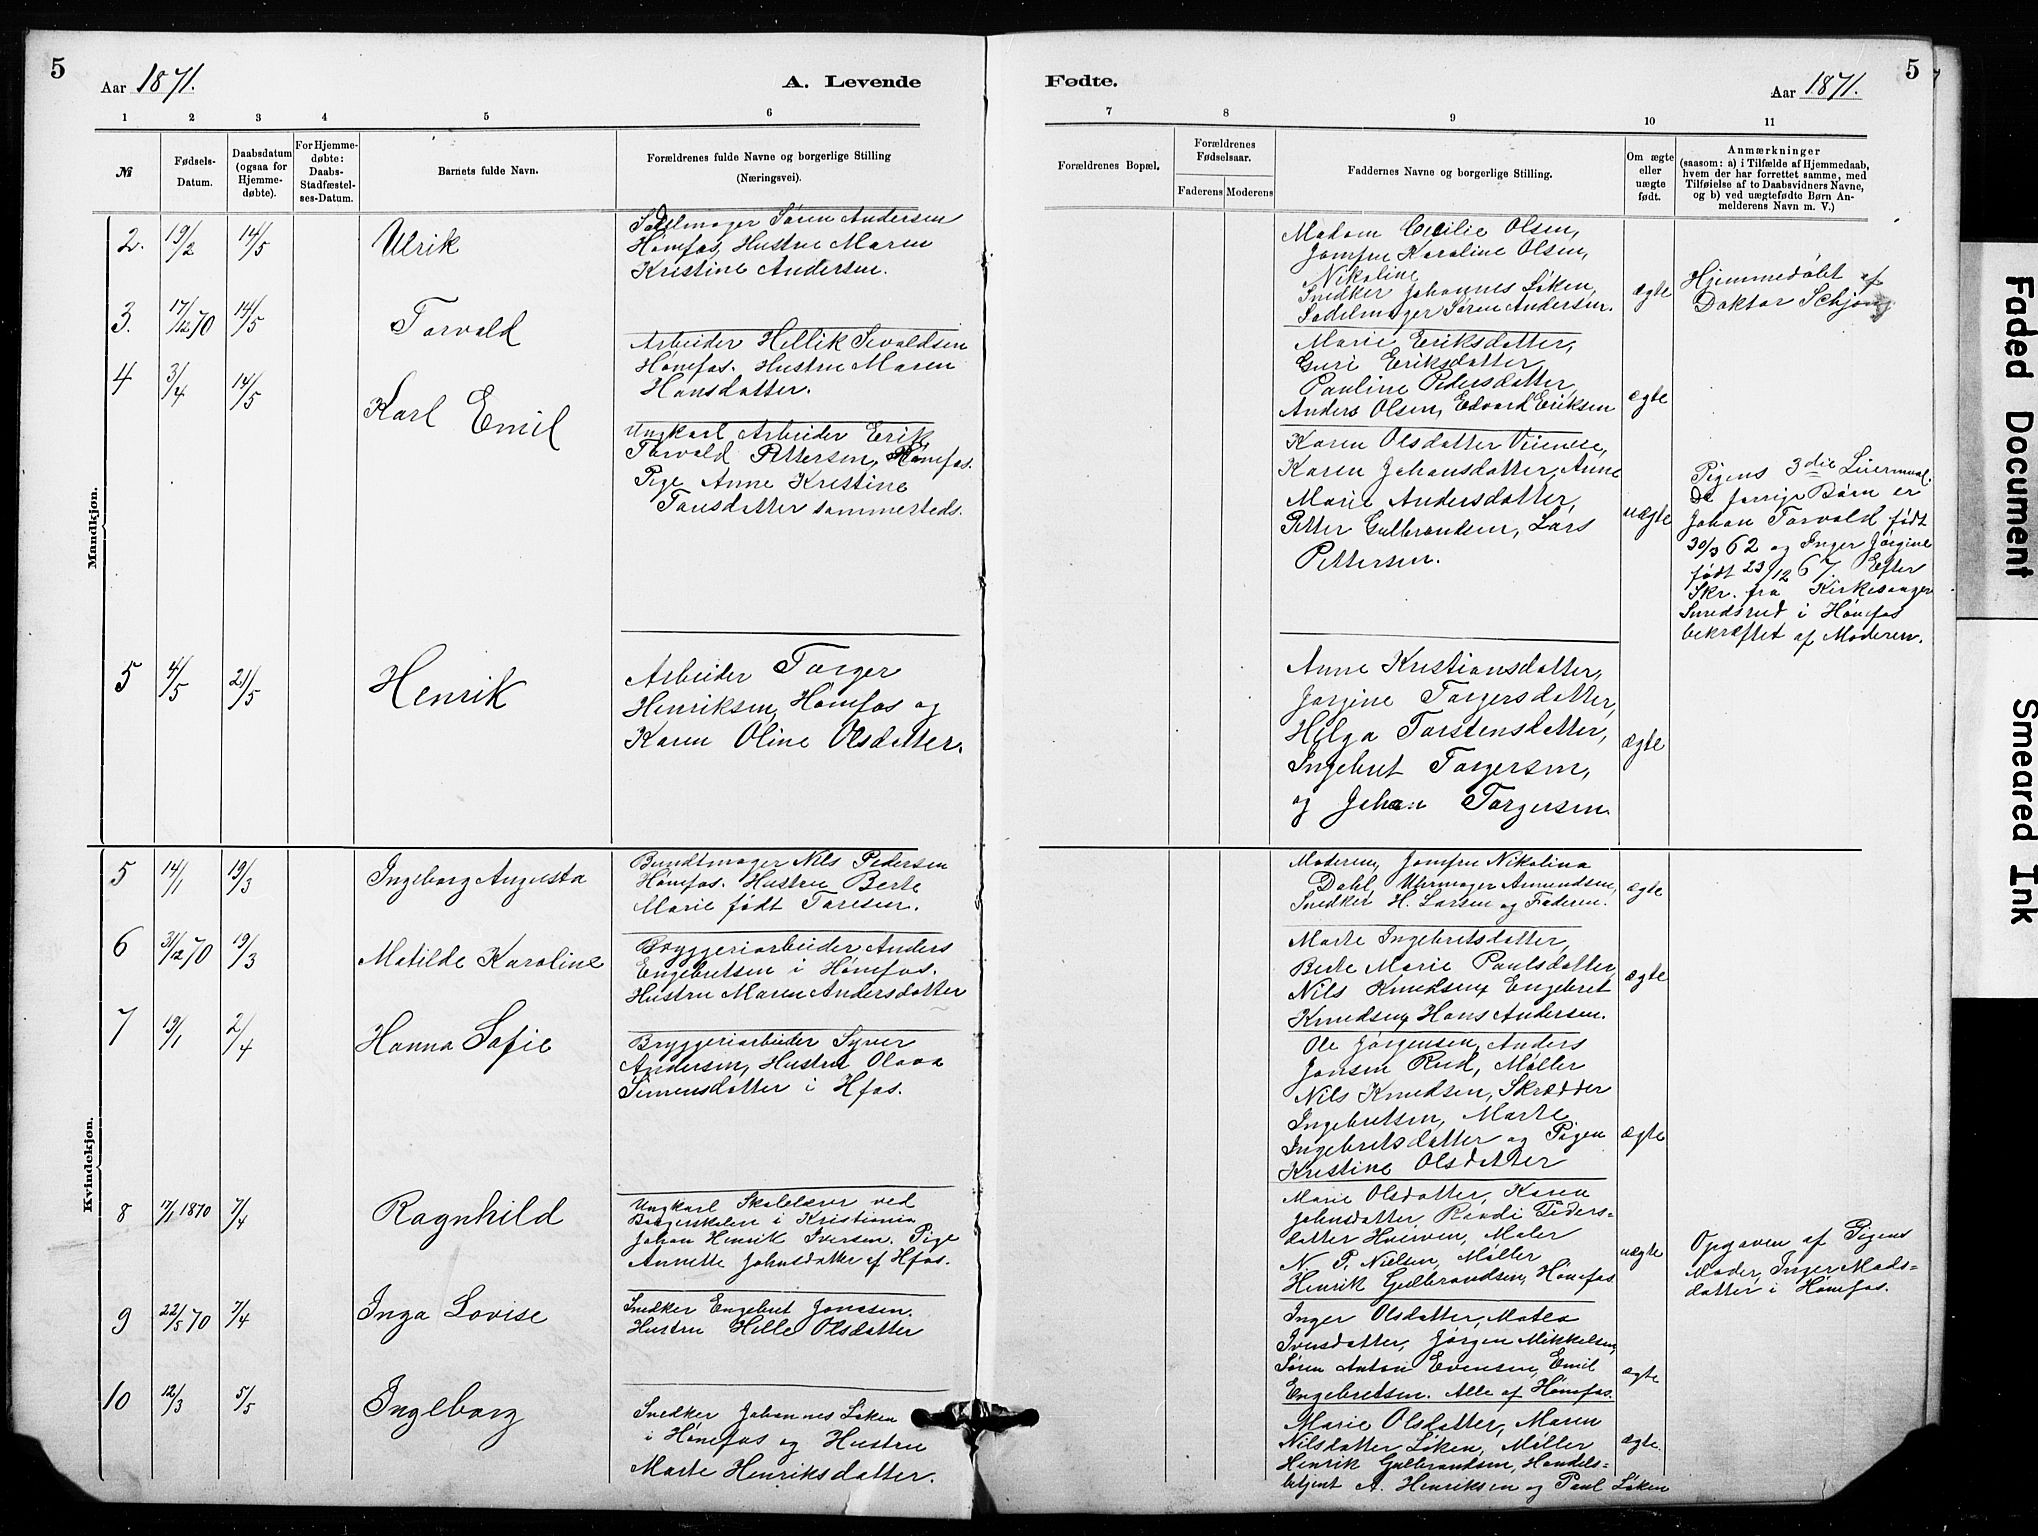 5
Aar 1871.
A. Levende
1 2 3 4 5 6
№
Fødsels-
Datum.
Daabsdatum
(ogsaa for
Hjemme-
døbte).
For Hjemme-
døbte:
Daabs-
Stadfæstel-
ses-Datum.
Barnets fulde Navn.
Forældrenes fulde Navne og borgerlige Stilling
(Næringsvei).
Mandkjøn.
2. 19/2 14/5 Ulrik
Sadelmager Søren Andersen
Hønefos. Hustru Maren
Kristine Andersen.
3. 17/12 70 14/5 Torvald
Arbeider Hellik Sevaldsen
Hønefos. Hustru Maren
Hansdatter.
4 3/4 14/5 Karl Emil
Ungkarl Arbeider Erik
Torvald Pettersen, Hønefos.
Pige Anne Kristine
Tansdatter sammesteds.
5 4/5 21/5 Henrik
Arbeider Torger
Henriksen, Hønefos og
Karen Oline Olsdatter.
Kvindekjøn.
5 14/1 19/3 Ingeborg Augusta
Bundtmager Nils Pedersen
Hønefos. Hustru Berte
Marie født Toresen.
6 31/12 70 19/3 Matilde Karoline
Bryggeriarbeider Anders
Engebretsen i Hønefos.
Hustru Maren Andersdatter
7 19/1 2/4 Hanna Sofie
Bryggeriarbeider Syver
Andersen, Hustru Olava
Simensdatter i Hfos.
8 17/1 1870 7/4 Ragnhild
Ungkarl Skolelærer ved
Borgerskolen i Kristiania
Johan Henrik Iversen. Pige
Annette Johnsdatter af Hfos.
9 22/5 70 7/4 Inga Lovise
Snedker Engebret Jonssen.
Hustru Helle Olsdatter
10 12/3 5/5 Ingeborg
Snedker Johannes Løken
i Hønefos og Hustru
Marte Henriksdatter.
Fødte.
Aar 1871.
5
7 8 9 10 11
Forældrenes Bopæl.
Forældrenes
Fødselsaar.
Faderens Moderens
Faddernes Navne og borgerlige Stilling.
Om ægte
eller
uægte
født.
Anmærkninger
(saasom: a) i Tilfælde af Hjemmedaab,
hvem der har forrettet samme, med
Tilføielse af to Daabsvidners Navne,
og b) ved uægtefødte Børn An-
melderens Navn m. V.)
Madam Cecilie Olsen,
Jomfru Karoline Olsen,
Nikoline
Snedker Johannes Løken,
Sadelmager Søren Andersen.
ægte
Hjemmedøbt af
Doktor Schjong
Marie Eriksdatter,
Guri Eriksdatter
Pauline Pedersdatter,
Anders Olsen, Edvard Eriksen
ægte
Karen Olsdatter
Karen Johansdatter, Anne
Marie Andersdatter,
Petter Gulbrandsen, Lars
Pettersen.
uægte
Pigens 3die Leiermaal.
De forrige Børn er
Johan Torvald, født
30/3 62 og Inger Jørgine
født 23/12 67. Efter
Skr. fra Kirkesanger
Smedsrud i Hønefos
bekræftet af Moderen.
Anne Kristiansdatter,
Jørgine Torgersdatter,
Helga Torstensdatter,
Ingebret Torgersen,
og Johan Torgersen.
ægte
Moderen, Jomfru Nikolina
Dahl, Uhrmager Amundsen,
Snedker H. Larsen og Faderen.
ægte
Marte Ingebretsdatter,
Berte Marie Paulsdatter
Nils Knudsen, Engebret
Knudsen, Hans Andersen.
ægte
Ole Jørgensen, Anders
Jonsen Rud, Møller
Nils Knudsen, Skrædder
Ingebretsen, Marte
Ingebretsdatter og Pigen
Kristine Olsdatter
ægte
Marie Olsdatter, Karen
Johnsdatter, Randi Peders-
datter Hverven, Maler
N. P. Nielsen, Møller
Henrik Gulbrandsen, Hønefos.
uægte
Opgaven af Pigens
Moder, Inger Mads-
datter i Hønefos.
Inger Olsdatter, Matea
Iversdatter, Jørgen Mikkelsen,
Søren Anton Evensen, Emil
Engebretsen. Alle af Hønefos.
ægte
Marie Olsdatter, Maren
Nilsdatter Løken, Møller
Henrik Gulbrandsen, Handels-
betjent A. Henriksen og Paul Løken
ægte.
Faded Document
Smeared Ink